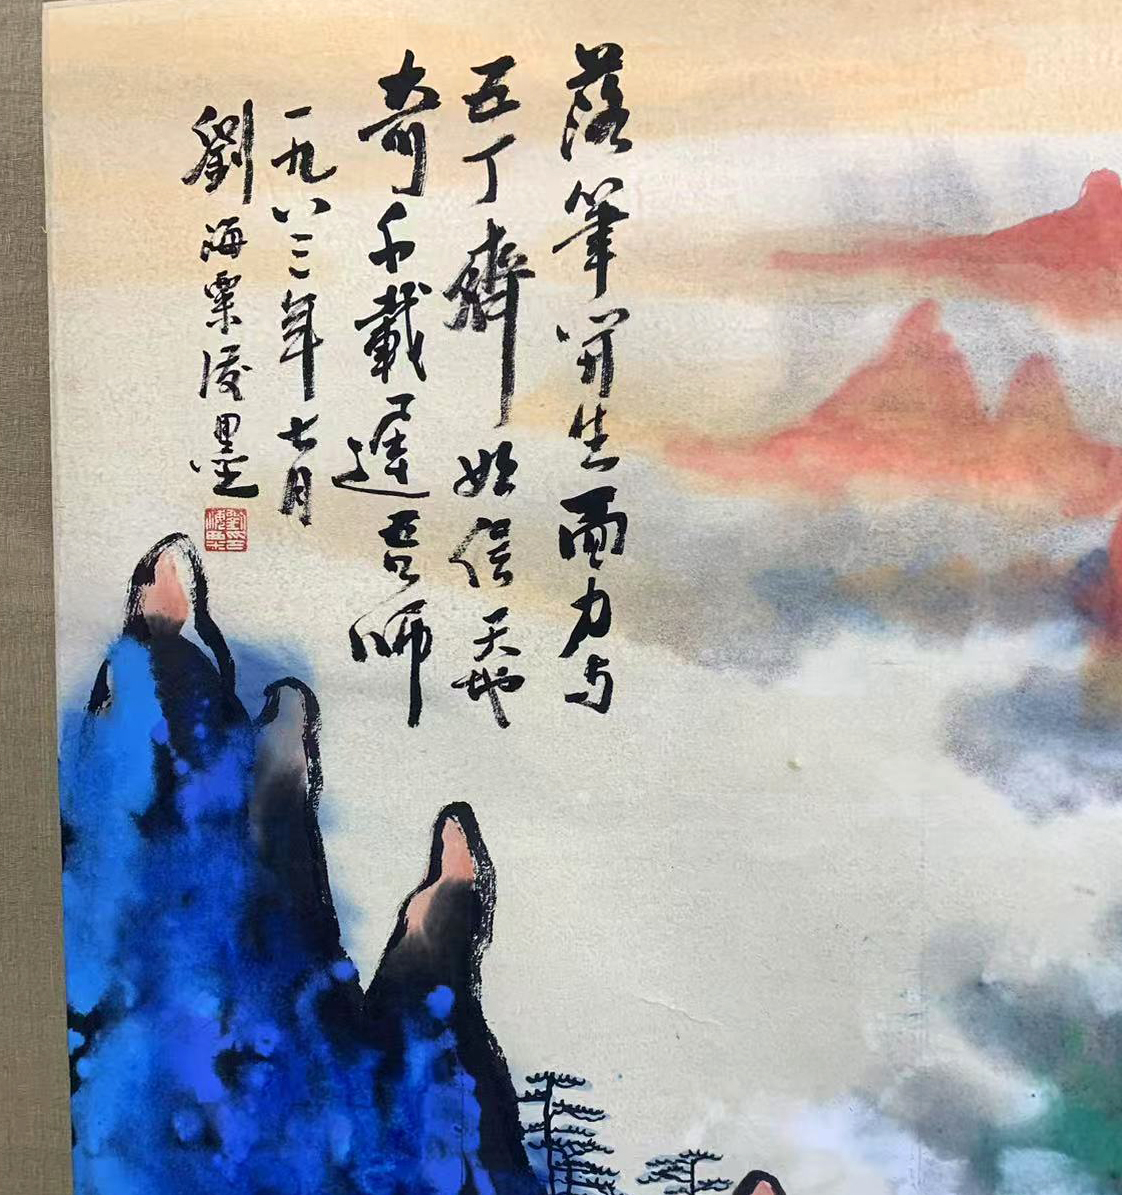 落筆開生面力与
五丁齊始信天地
奇千載遲吾師
一九八三年七月
劉海粟潑墨
劉印海粟